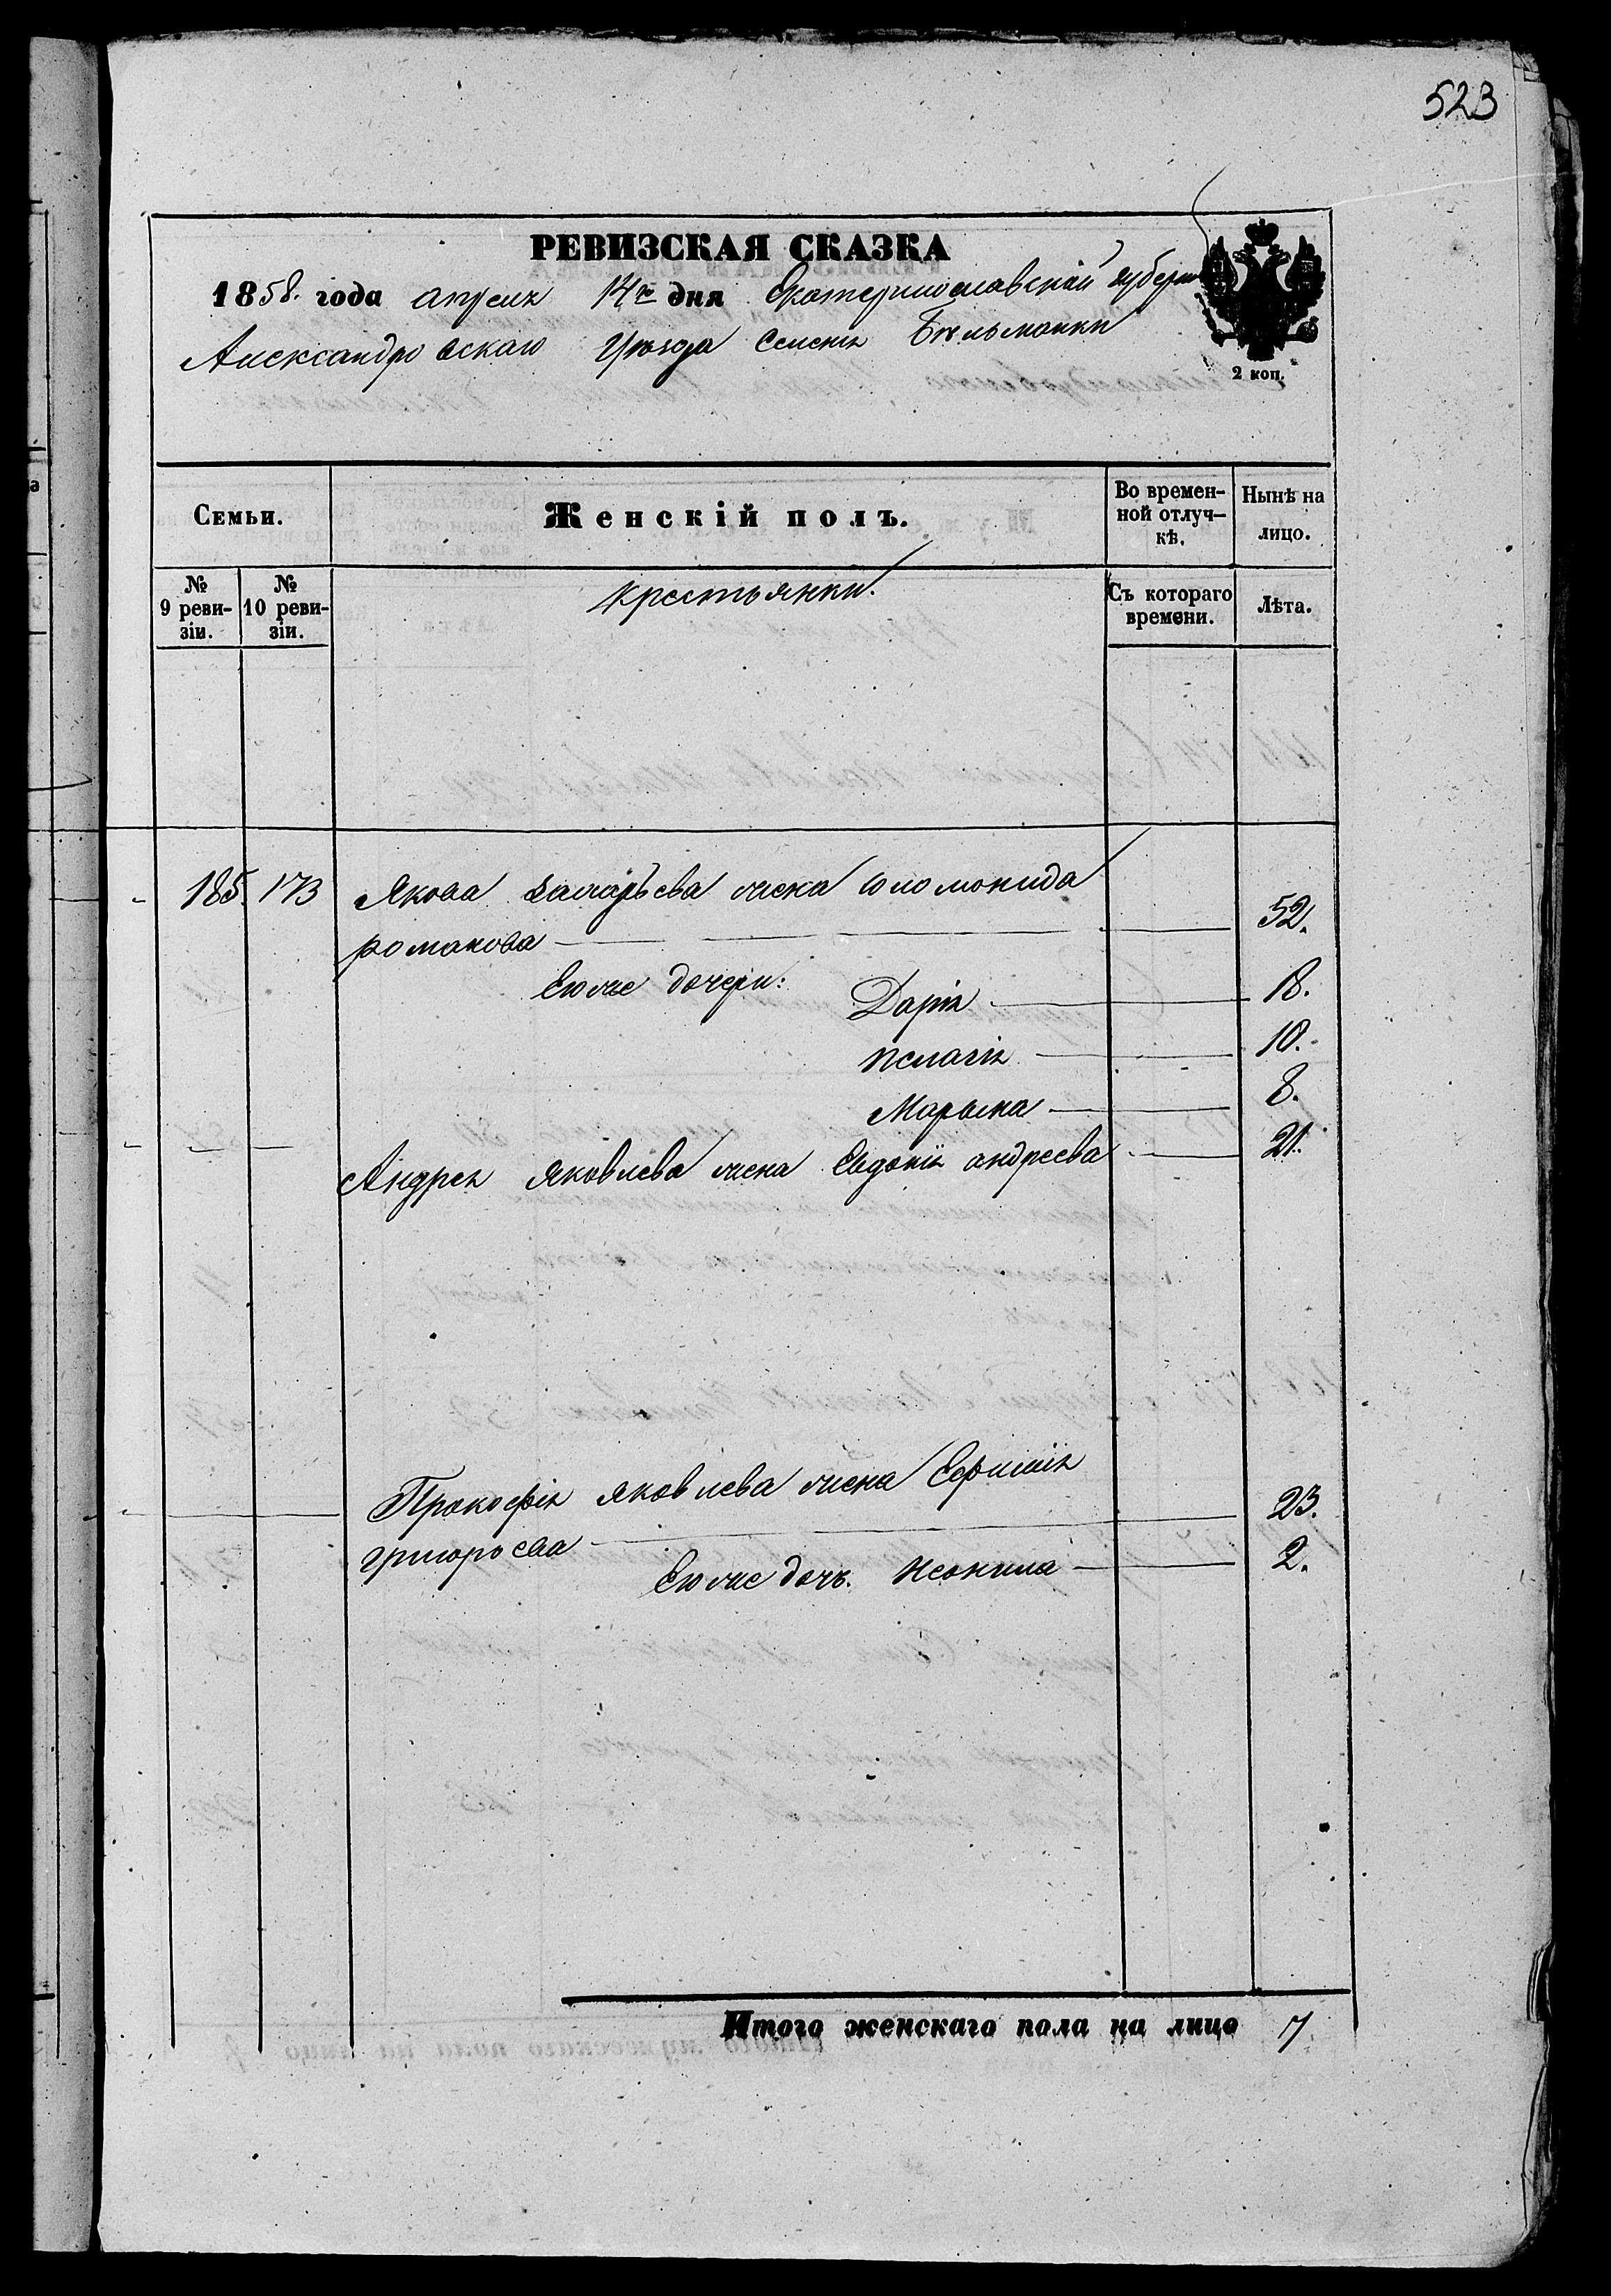 523
РЕВИЗСКАЯ СКАЗКА
1858. года апреля 14го дня Екатеринославской губерн
Александровскаго Уѣзда Селенія Бѣльманки
2 коп.
Семьи.
Женскій полъ.
Во времен-
ной отлуч-
кѣ.
Нынѣ на
лицо.
№
9 реви-
зіи.
№
10 реви-
зіи.
крестьянки.
Съ котораго
времени.
Лѣта.
185. 173 Якова жена Соломонида
романова 52.
Ею же дочери:
Дарія 18.
пелагія 10.
Марьяна 8.
Андрея яковлева жена Евдокія андреева 21.
Прокофія яковлева жена Ефимія
григорьева 23.
Ею же дочь. Неонила 2.
Итого женскаго пола на лицо 7